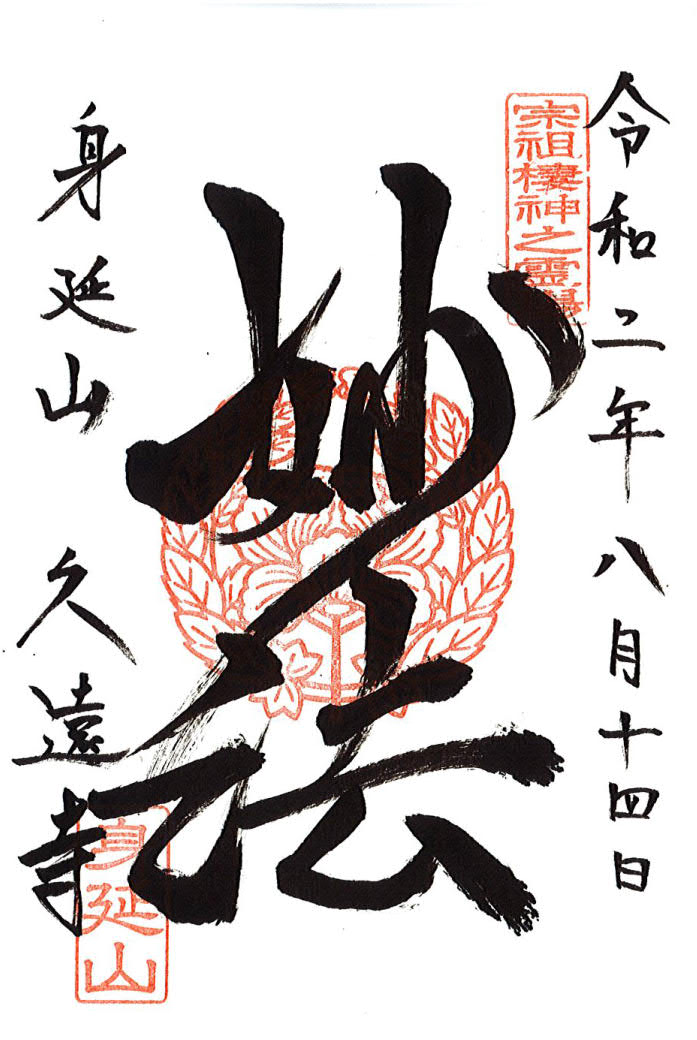 令和二年八月十四日
宗祖棲神之霊場
妙法
身延山 久遠寺
身延山